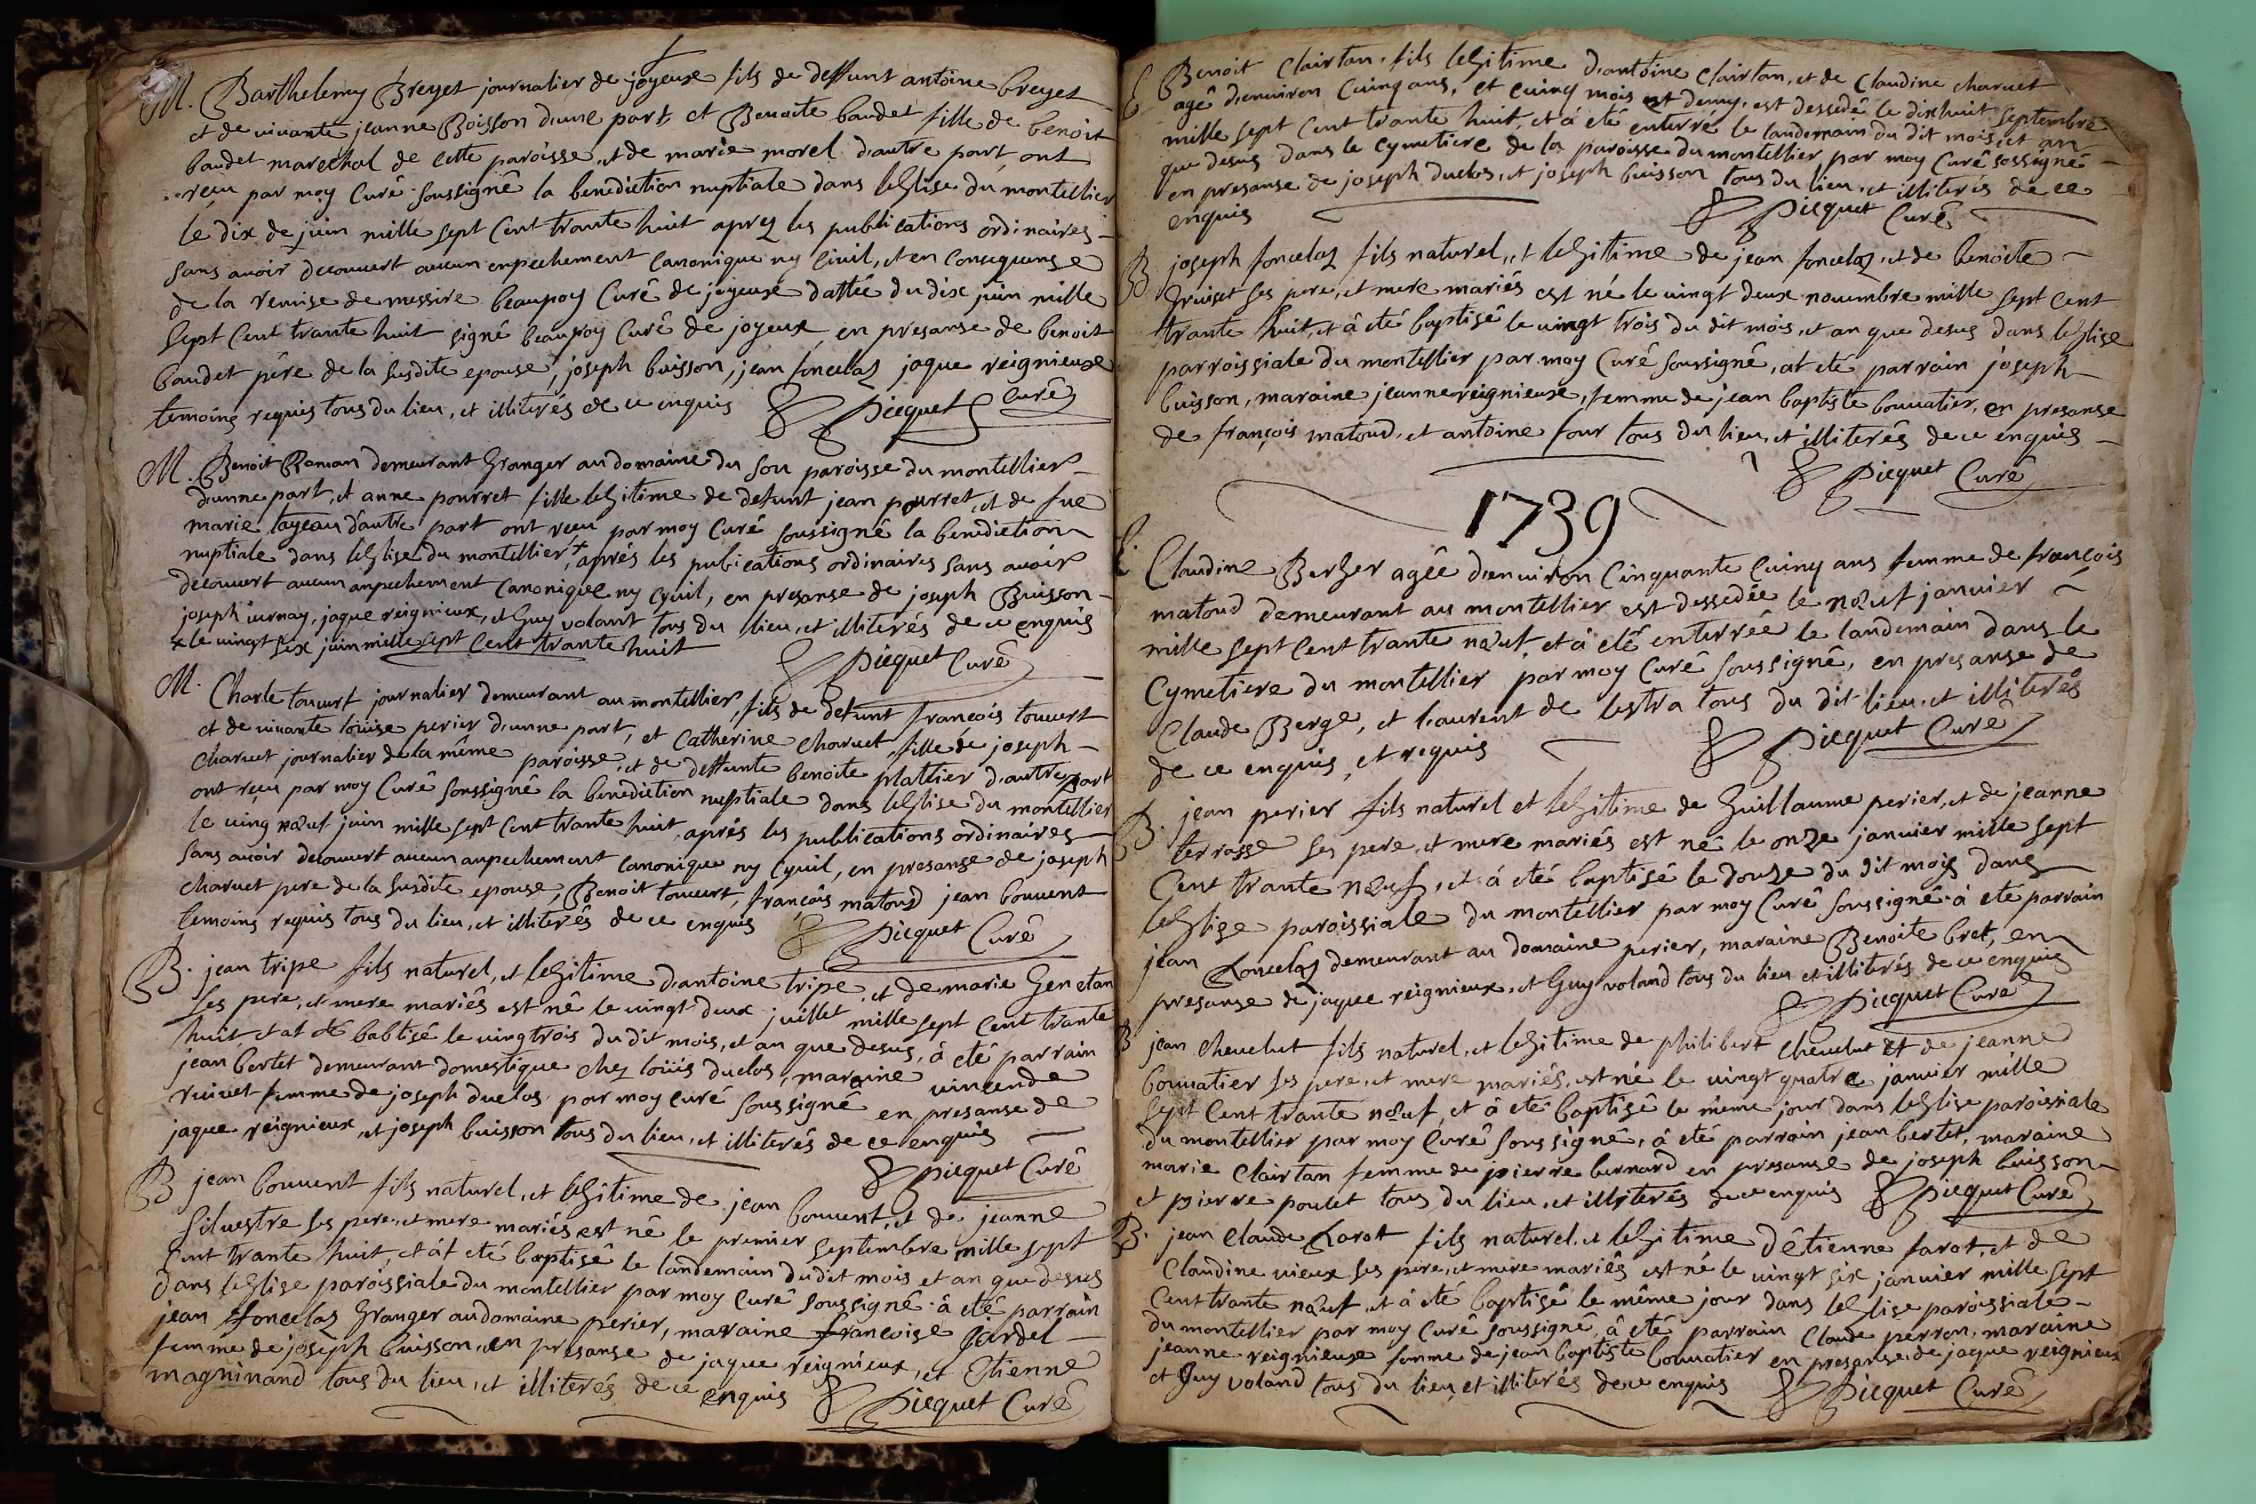 M. Barthelemy Breyet journalier de joyeux fils de deffunt antoine breyet
et de vivante jeanne Boisson d'une part et Benoite baudet fille de benoit
baudet marechal de cette paroisse, et de marie morel d'autre part ont
reçu par moy Curé soussigné la benediction nuptiale dans leglise du montellier
le dix de juin mille sept Cent trante huit aprez les publications ordinaires
sans avoir decouvert aucun enpechement canonique ny Civil, et en consequense
de la remise de messire beaupoy Curé de joyeux dattée du dix juin mille
sept Cent trante huit signé beaupoy Curé de joyeux, en presanse de benoit
baudet pére de la susdite epouse, joseph buisson, jean foncelaz jaque reignieux
temoins requis tous du lieu, et illiterés de ce enquis Picquet Curé
M. Benoit Roman demeurant Granger au domaine du sou paroisse du montellier
dunne part, et anne pourret fille legitime de defunt jean pourret, et de fue
marie tayeau d'autre part ont reçu par moy Curé soussigné la benediction
nuptiale dans leglise du montellier + aprés les publications ordinaires sans avoir
decouvert aucun anpechement canonique ny cyvil, en presanse de joseph Buisson
joseph jurnay, jaque reignieux, et Guy volant tous du lieu, et illiterés de ce enquis
x le vingt six juin mille sept Cent trante huit Picquet Curé
M. Charle touvert journalier demeurant au montellier, fils de defunt françois touvert
et de vivante loüise perier d'unne part, et Catherine charvet fille de joseph
charvet journalier de la méme paroisse, et de deffunte benoite plattier d'autre part
ont reçu par moy Curé soussigné la benediction nuptiale dans leglise du montellier
le ving nœuf juin mille sept Cent trante huit, aprés les publications ordinaires
sans avoir decouvert aucun anpechement canonique ny cyvil, en presanse de joseph
charvet pere de la susdite epouse, Benoit touvert, françois matoud jean bouvent
temoins requis tous du lieu, et illiterés de ce enquis Picquet Curé
B. jean tripe fils naturel, et legitime d'antoine tripe, et de marie Genetan
ses pere, et mere mariés est né le vingt deux juillet mille sept Cent trante
huit, et at eté babtisé le vingtrois du dit mois, et an que desus, à eté parrain
jean bertet demeurant domestique chez loüis duclos, maraine vincende
rivivet femme de joseph duclos par moy curé soussigné en presanse de
jaque reignieux, et joseph buisson tous du lieu, et illiterés de ce enquis
Picquet Curé
B jean bouvent fils naturel, et legitime de jean bouvent, et de jeanne
silvestre ses pere, et mere mariés est né le premier septembre mille sept
Cent trante huit, et át eté baptisé le landemain du dit mois et an que desus
dans leglise paroissiale du montellier par moy Curé soussigné à eté parrain
jean foncelaz Granger au domaine perier, maraine francoise jardet
femme de joseph buisson, en presanse de jaque reignieux, et Etienne
magninand tous du lieu, et illiterés de ce enquis Picquet Curé
E Benoit Clairtan, fils legitime d'antoine Clairtan, et de Claudine charvet
agé d'environ Cuinq ans, et cuinq mois et demy, est dessedé le dixhuit septembre
mille sept Cent trante huit, et á eté enterré le landemain du dit mois, et an
que desus dans le cymetiere de la paroisse du montellier par moy Curé sossigné
en presanse de joseph duclos, et joseph buisson tous du lieu, et illiterés de ce
enquis Picquet Curé
B joseph foncelaz fils naturel, et legitime de jean foncelaz, et de benoite
Gruiset ses pere, et mere mariés est né le vingt deux novembre mille sept cent
trante huit, et â eté baptisé le vingt trois du dit mois, et an que desus dans leglise
parroissiale du montellier par moy Curé soussigné, at eté parrain joseph
buisson, maraine jeanne reignieux, femme de jean baptiste bouvatier, en presanse
de françois matoud, et antoine four tous du lieu, et illiterés de ce enquis
Picquet Curé
1739
E. Claudine Berger agée d'environ Cinquante Cuinq ans femme de françois
matoud demeurant au montellier est dessedée le nœuf janvier
mille sept Cent trante nœuf, et à eté enterrée le landemain dans le
Cymetiere du montellier par moy Curé soussigné, en presanse de
Claude Berge, et laurent de lestra tous du dit lieu, et illiterés
de ce enquis, et requis Picquet Curé
B. jean perier fils naturel et legitime de Guillaume perier, et de jeanne
terrasse ses pere, et mere mariés est né le onze janvier mille sept
Cent trante nœuf, et á eté baptisé le douze du dit mois dans
leglise paroissiale du montellier par moy Curé soussigné à eté parrain
jean foncelaz demeurant au domaine perier, maraine Benoite bret, en
presanse de jaque reignieux, et Guy voland tous du lieu et illiterés de ce enquis
Picquet Curé
B jean chevelut fils naturel, et legitime de philibert chevelut et de jeanne
bouvatier ses pere, et mere mariés, est né le vingt quatre janvier mille
sept Cent trante nœuf, et à eté baptisé le méme jour dans leglise paroissiale
du montellier par moy Curé soussigné, á eté parrain jean bertet, maraine
marie Clairtan femme de pierre bernard en presanse de joseph buisson
et pierre poulet tous du lieu, et illiterés de ce enquis Picquet Curé
B. jean Claude farot fils naturel, et legitime d'étienne farot, et de
Claudine vieux ses pere, et mere mariés est né le vingt six janvier mille sept
Cent trante nœuf, et à eté baptisé le méme jour dans leglise paroissiale
du montellier par moy Curé soussigné, á eté parrain Claude perron, maraine
jeanne reignieux femme de jean baptiste bouvatier en presanse de jaque reignieux
et Guy voland tous du lieu et illiterés de ce enquis Picquet Curé